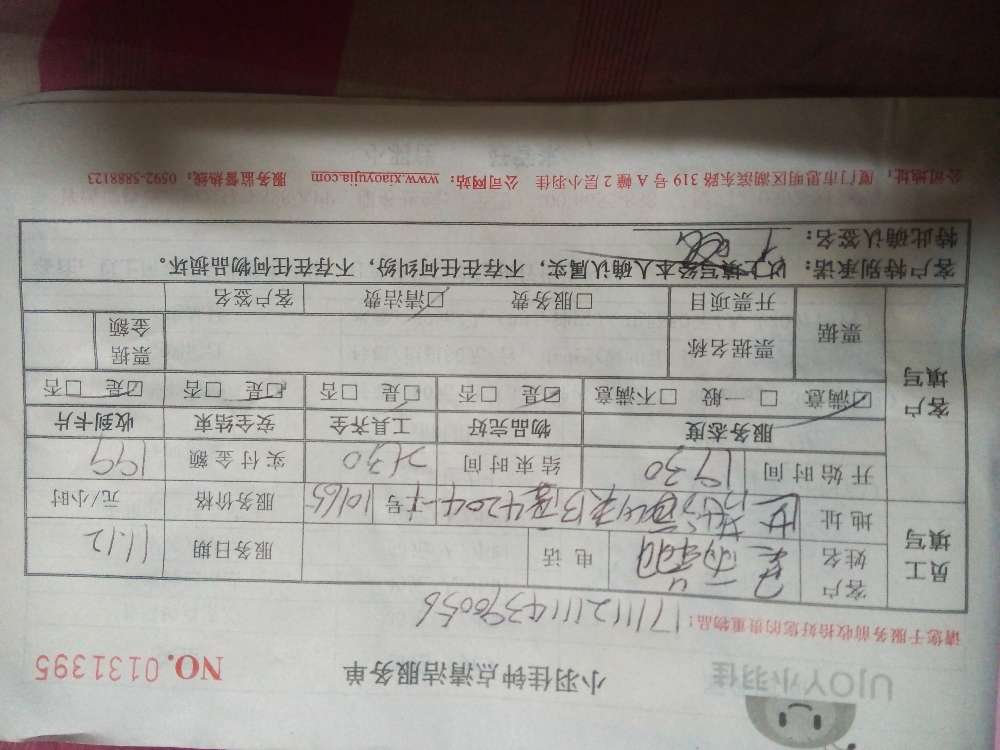 UJOY小羽佳
小羽佳钟点清洁服务单 NO.0131395
请您于服务前收拾好您的贵重物品： 1711121114390056
员工填写 客户姓名 电话 服务日期 11.12
地址 B 4204 工号 10165 服务价格 元/小时
开始时间 1730 结束时间 2130 实付金额 199
客户填写 服务态度 物品完好 工具齐全 安全结束 收到卡片
☑满意 □一般 □不满意 ☑是 □否 ☑是 □否 ☑是 □否 ☑是 □否
票据 票据名称 票据金额
开票项目 □服务费 ☑清洁费 客户签名
客户特别承诺：以上填写经本人确认属实，不存在任何纠纷，不存在任何物品损坏。
特此确认签名：
公司地址：厦门市思明区湖滨东路 319 号 A 幢 2 层小羽佳 公司网站：www.xiaoyujia.com 服务监督热线：0592-5888123